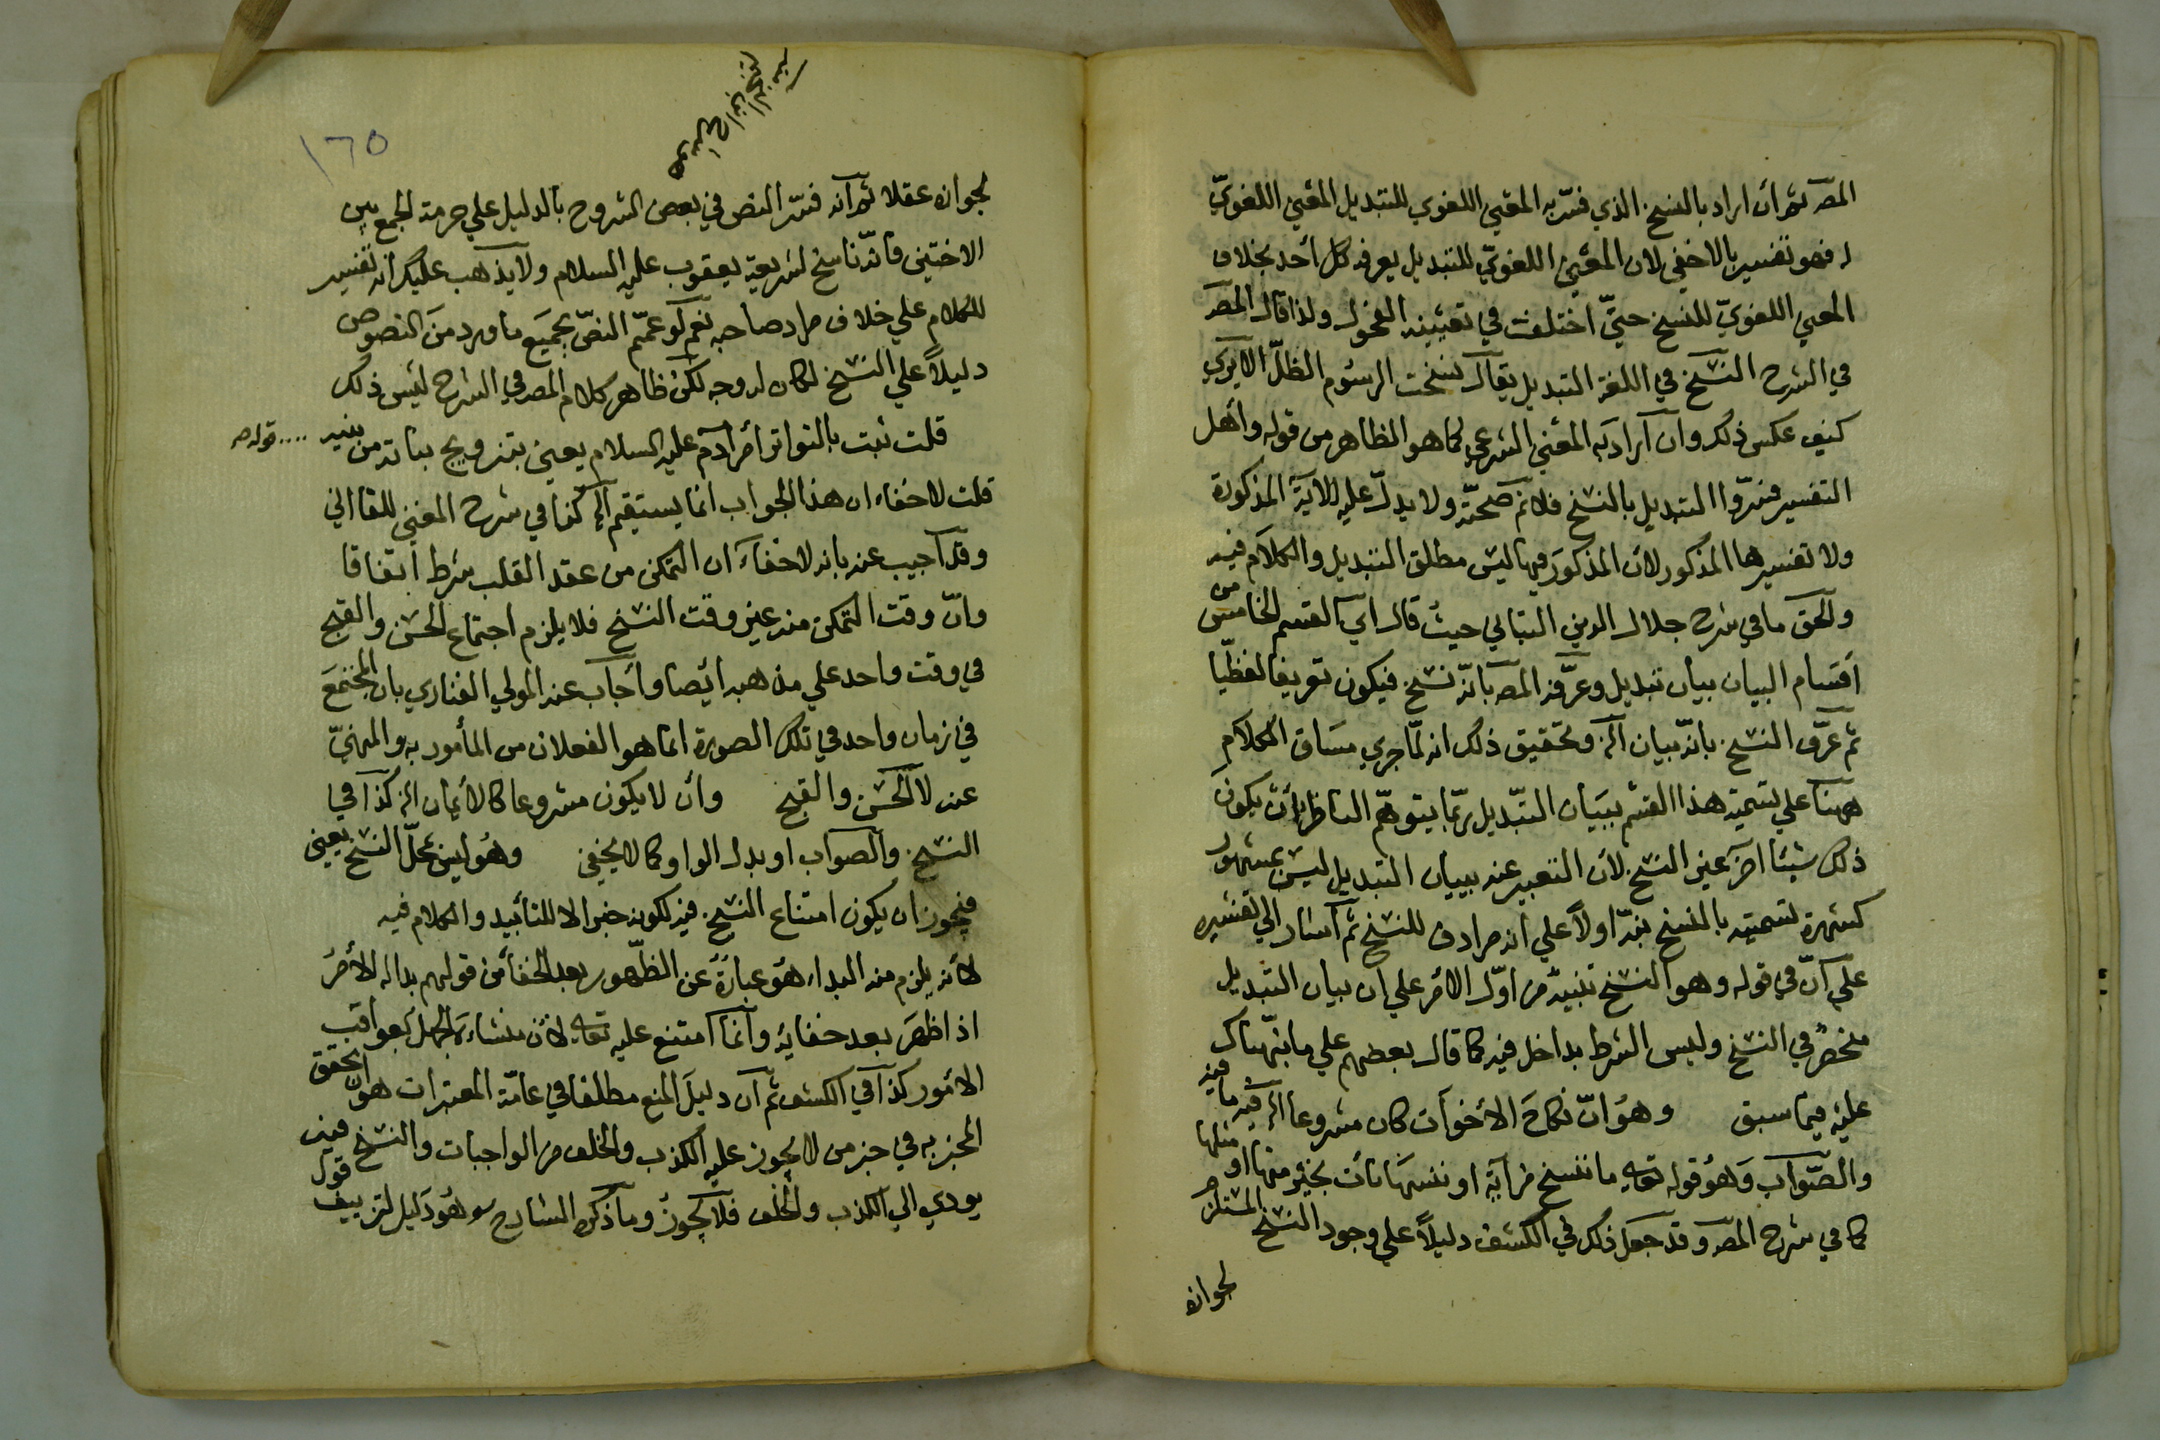 المص ثم ان اراد بالنسخ الذي فسّر به المعني اللغوي للتبديل المعني اللغويّ
له فهو تفسير بالاخفي لان المعني اللغويّ للتبديل يعرفه كل أحد بخلاف
المعني اللغويّ للنسخ حتيّ اختلفت في تعيينه الفحول ولذا قال المص
في الشرح النسخ في اللغة التبديل يقال نسخت الرسوم الظلّ الا يري
كيف عكس ذلك وان أراد به المعني الشرعي كما هو الظاهر من قوله وأهل
التفسير فسرّوا التبديل بالنسخ فلا ثم صحته ولا يدلّ عليه الآية المذكورة
ولا تفسيرها المذكور لان المذكور فيها ليس مطلق التبديل والكلام فيه
والحق ما في شرح جلال الدين التباني حيث قال اي القسم الخامس من
أقسام البيان بيان تبديل وعرّفه المص بانّه نسخ فيكون تعريفا لفظيّا
ثم عرّف النسخ بانّه بيان الخ وتحقيق ذلك انه لمّا جري مساق الكلام
ههنا علي تسمية هذا القسم ببيان التبّديل ربّما يتوهّم الناظر بأن يكون
ذلك شيئا آخر غير النسخ لأن التعبير عنه ببيان التبديل ليس بمشهور
كشهرة تسميته بالنسخ نبّه اولاً علي انه مرادف للنسخ ثم أشار الي تفسيره
علي انّ في قوله وهو النسخ تنبيه من اوّل الامر علي ان بيان التبديل
منحصر في النسخ وليس الشرط بداخل فيه كما قال بعضهم علي ما نبّهناك
عليه فيما سبق وهو انّ نكاح الأخوات كان مشروعا الخ فيه ما فيه
والصّواب وهو قوله تعالي ما ننسخ من آية او ننسها نأت بخير منها او مثلها
كما في شرح المص وقد جعل ذلك في الكشف دليلاً علي وجود النسخ المستلزم
لجوازه
١٦٥
لجوازه عقلا ثم انه فسّر النص في بعض الشروح بالدليل علي حرمة الجمع بين
الاختين فانّه ناسخ لشريعة يعقوب عليه السلام ولا يذهب عليك انه تفسير
للكلام علي خلاف مراد صاحبه نعم لو عمّم النصّ بجميع ما ورد من النصوص
دليلاً علي النسخ لكان له وجه لكن ظاهر كلام المص في الشرح ليس ذلك
قلت ثبت بالتواتر أمر آدم عليه السلام يعني بتزويج بناته من بنيه .... قوله
قلت لا خفاء ان هذا الجواب انما يستقيم الخ كذا في شرح المغني للقاآني
وقد أجيب عنه بانه لا خفاء ان التمكن من عقد القلب شرط اتفاقا
وانّ وقت التمكن منه غير وقت النسخ فلا يلزم اجتماع الحسن والقبح
في وقت واحد علي مذهبه أيضا وأجاب عنه المولي الفناري بان المجتمع
في زمان واحد في تلك الصورة انما هو الفعلان من المأمور به والمنهيّ
عنه لا الحسن والقبح وأن لا يكون مشروعا كالأيمان الخ كذا في
النسخ والصواب او بدل الواو كما لا يخفي وهو ليس محلّ النسخ يعني
فيجوز ان يكون امتناع النسخ فيه لكونه خبرا لا للتأبيد والكلام فيه
لأنه يلزم منه البداء هو عبارة عن الظّهور بعد الخفأ من قولهم بدا له الأمر
اذا ظهر بعد خفايه وانما امتنع عليه تعالي لان منشاءه الجهل بعواقب
الامور كذا في الكشف ثم ان دليل المنع مطلقا في عامّة المعتبرات هو ان تحقق
المخبر به في خبر من لا يجوز عليه الكذب والخلف من الواجبات والنسخ فيه
يودي الي الكذب والخلف فلا يجوز وما ذكره الشارح هو دليل لتزييف قول